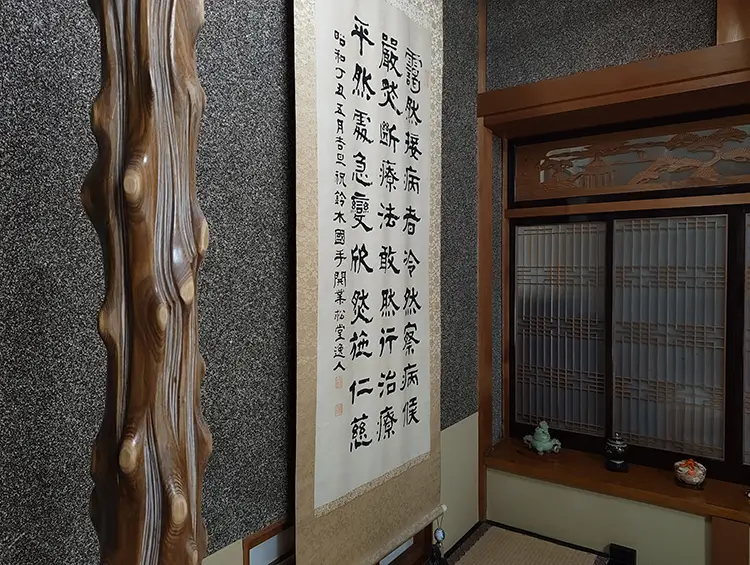 靄然接病者冷然察病候
嚴然斷療法敢然行治療
平然處急變欣然施仁慈
昭和丁丑五月吉旦祝鈴木國手開業松堂逸人